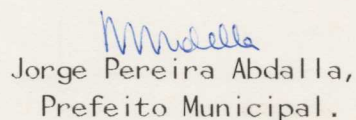 Jorge Pereira Abdalla,
Prefeito Municipal.